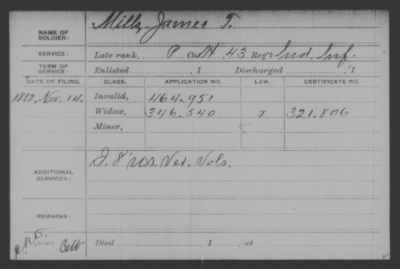 NAME OF SOLDIER: Mills, James T.
SERVICE: Late rank, P Co. H, 43 Reg't Ind. Inf.
TERM OF SERVICE: Enlisted , 1 Discharged , 1
DATE OF FILING. CLASS. APPLICATION NO. LAW. CERTIFICATE NO.
1882, Nov. 14. Invalid, 464.951
Widow, 346.540 J 321.806
Minor,
ADDITIONAL SERVICES: D. 8" U.S. Vet. Vols.
REMARKS:
Died , 1 , at